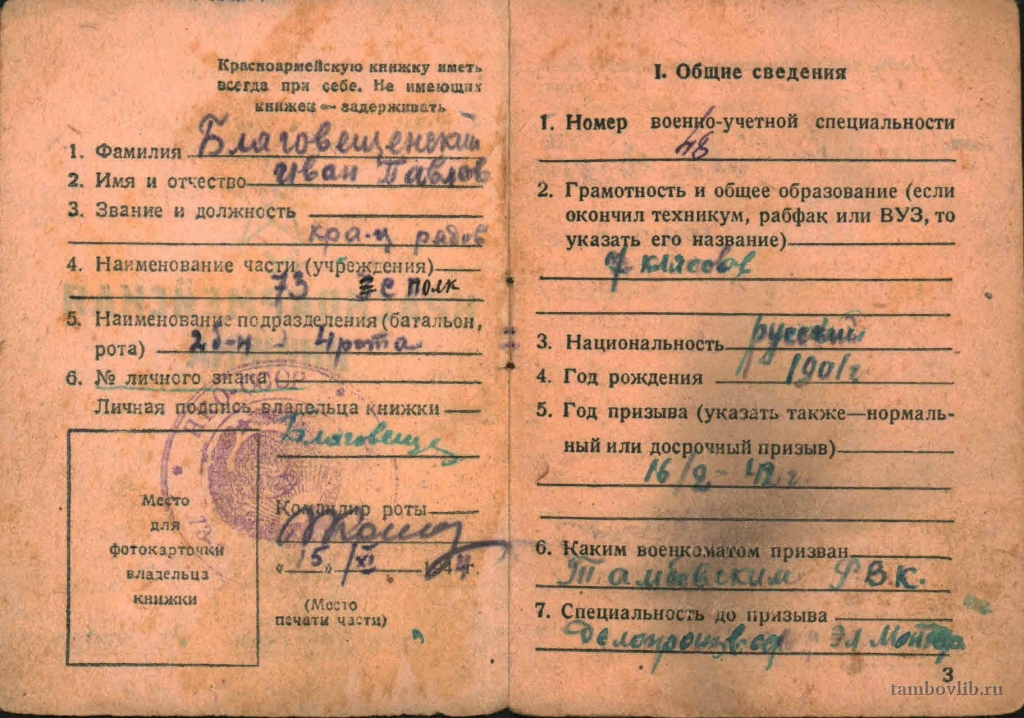 Красноармейскую книжку иметь
всегда при себе. Не имеющих
книжек — задерживать
1. Фамилия Благовещенский
2. Имя и отчество Иван Павлов
3. Звание и должность
кра-ц рядов
4. Наименование части (учреждения)
73 полк
5. Наименование подразделения (батальон,
рота) 2 б-н 4 рота
6. № личного знака
Личная подпись владельца книжки
Благовещ
НКО-СССР
Командир роты
Место
для
фотокарточки
владельца
книжки
«15» XI 44
(Место
печати части)
I. Общие сведения
1. Номер военно-учетной специальности
48
2. Грамотность и общее образование (если
окончил техникум, рабфак или ВУЗ, то
указать его название)
7 классов
3. Национальность русский
4. Год рождения 1901 г
5. Год призыва (указать также—нормаль-
ный или досрочный призыв)
16/2-42 г
6. Каким военкоматом призван
Тамбовским РВК.
7. Специальность до призыва
Эл Монтер
3
tambovlib.ru